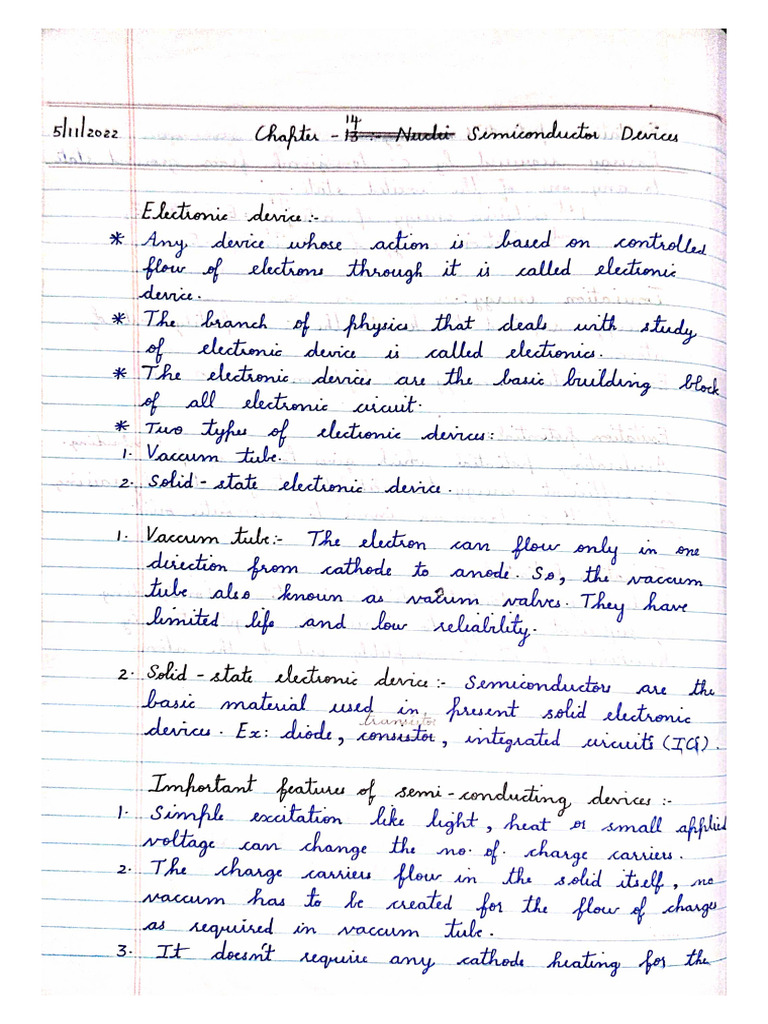 5/11/2022 Chapter - 14 13 :- Nuclei Semiconductor Devices
Electronic device :-
* Any device whose action is based on controlled
flow of electrons through it is called electronic
device.
* The branch of physics that deals with study
of electronic device is called electronics.
* The electronic devices are the basic building block
of all electronic circuit.
* Two types of electronic devices:
1. Vaccum tube.
2. Solid-state electronic device.
1. Vaccum tube:- The electron can flow only in one
direction from cathode to anode. So, the vaccum
tube also known as vacuum valves. They have
limited life and low reliability.
2. Solid-state electronic device :- Semiconductors are the
basic material used in present solid electronic
transistor
devices. Ex: diode, consistor, integrated circuits (ICs).
Important features of semi-conducting devices :-
1. Simple excitation like light, heat or small applied
voltage can change the no. of. charge carriers.
2. The charge carriers flow in the solid itself, no
vaccum has to be created for the flow of charges
as required in vaccum tube.
3. It doesn't require any cathode heating for the